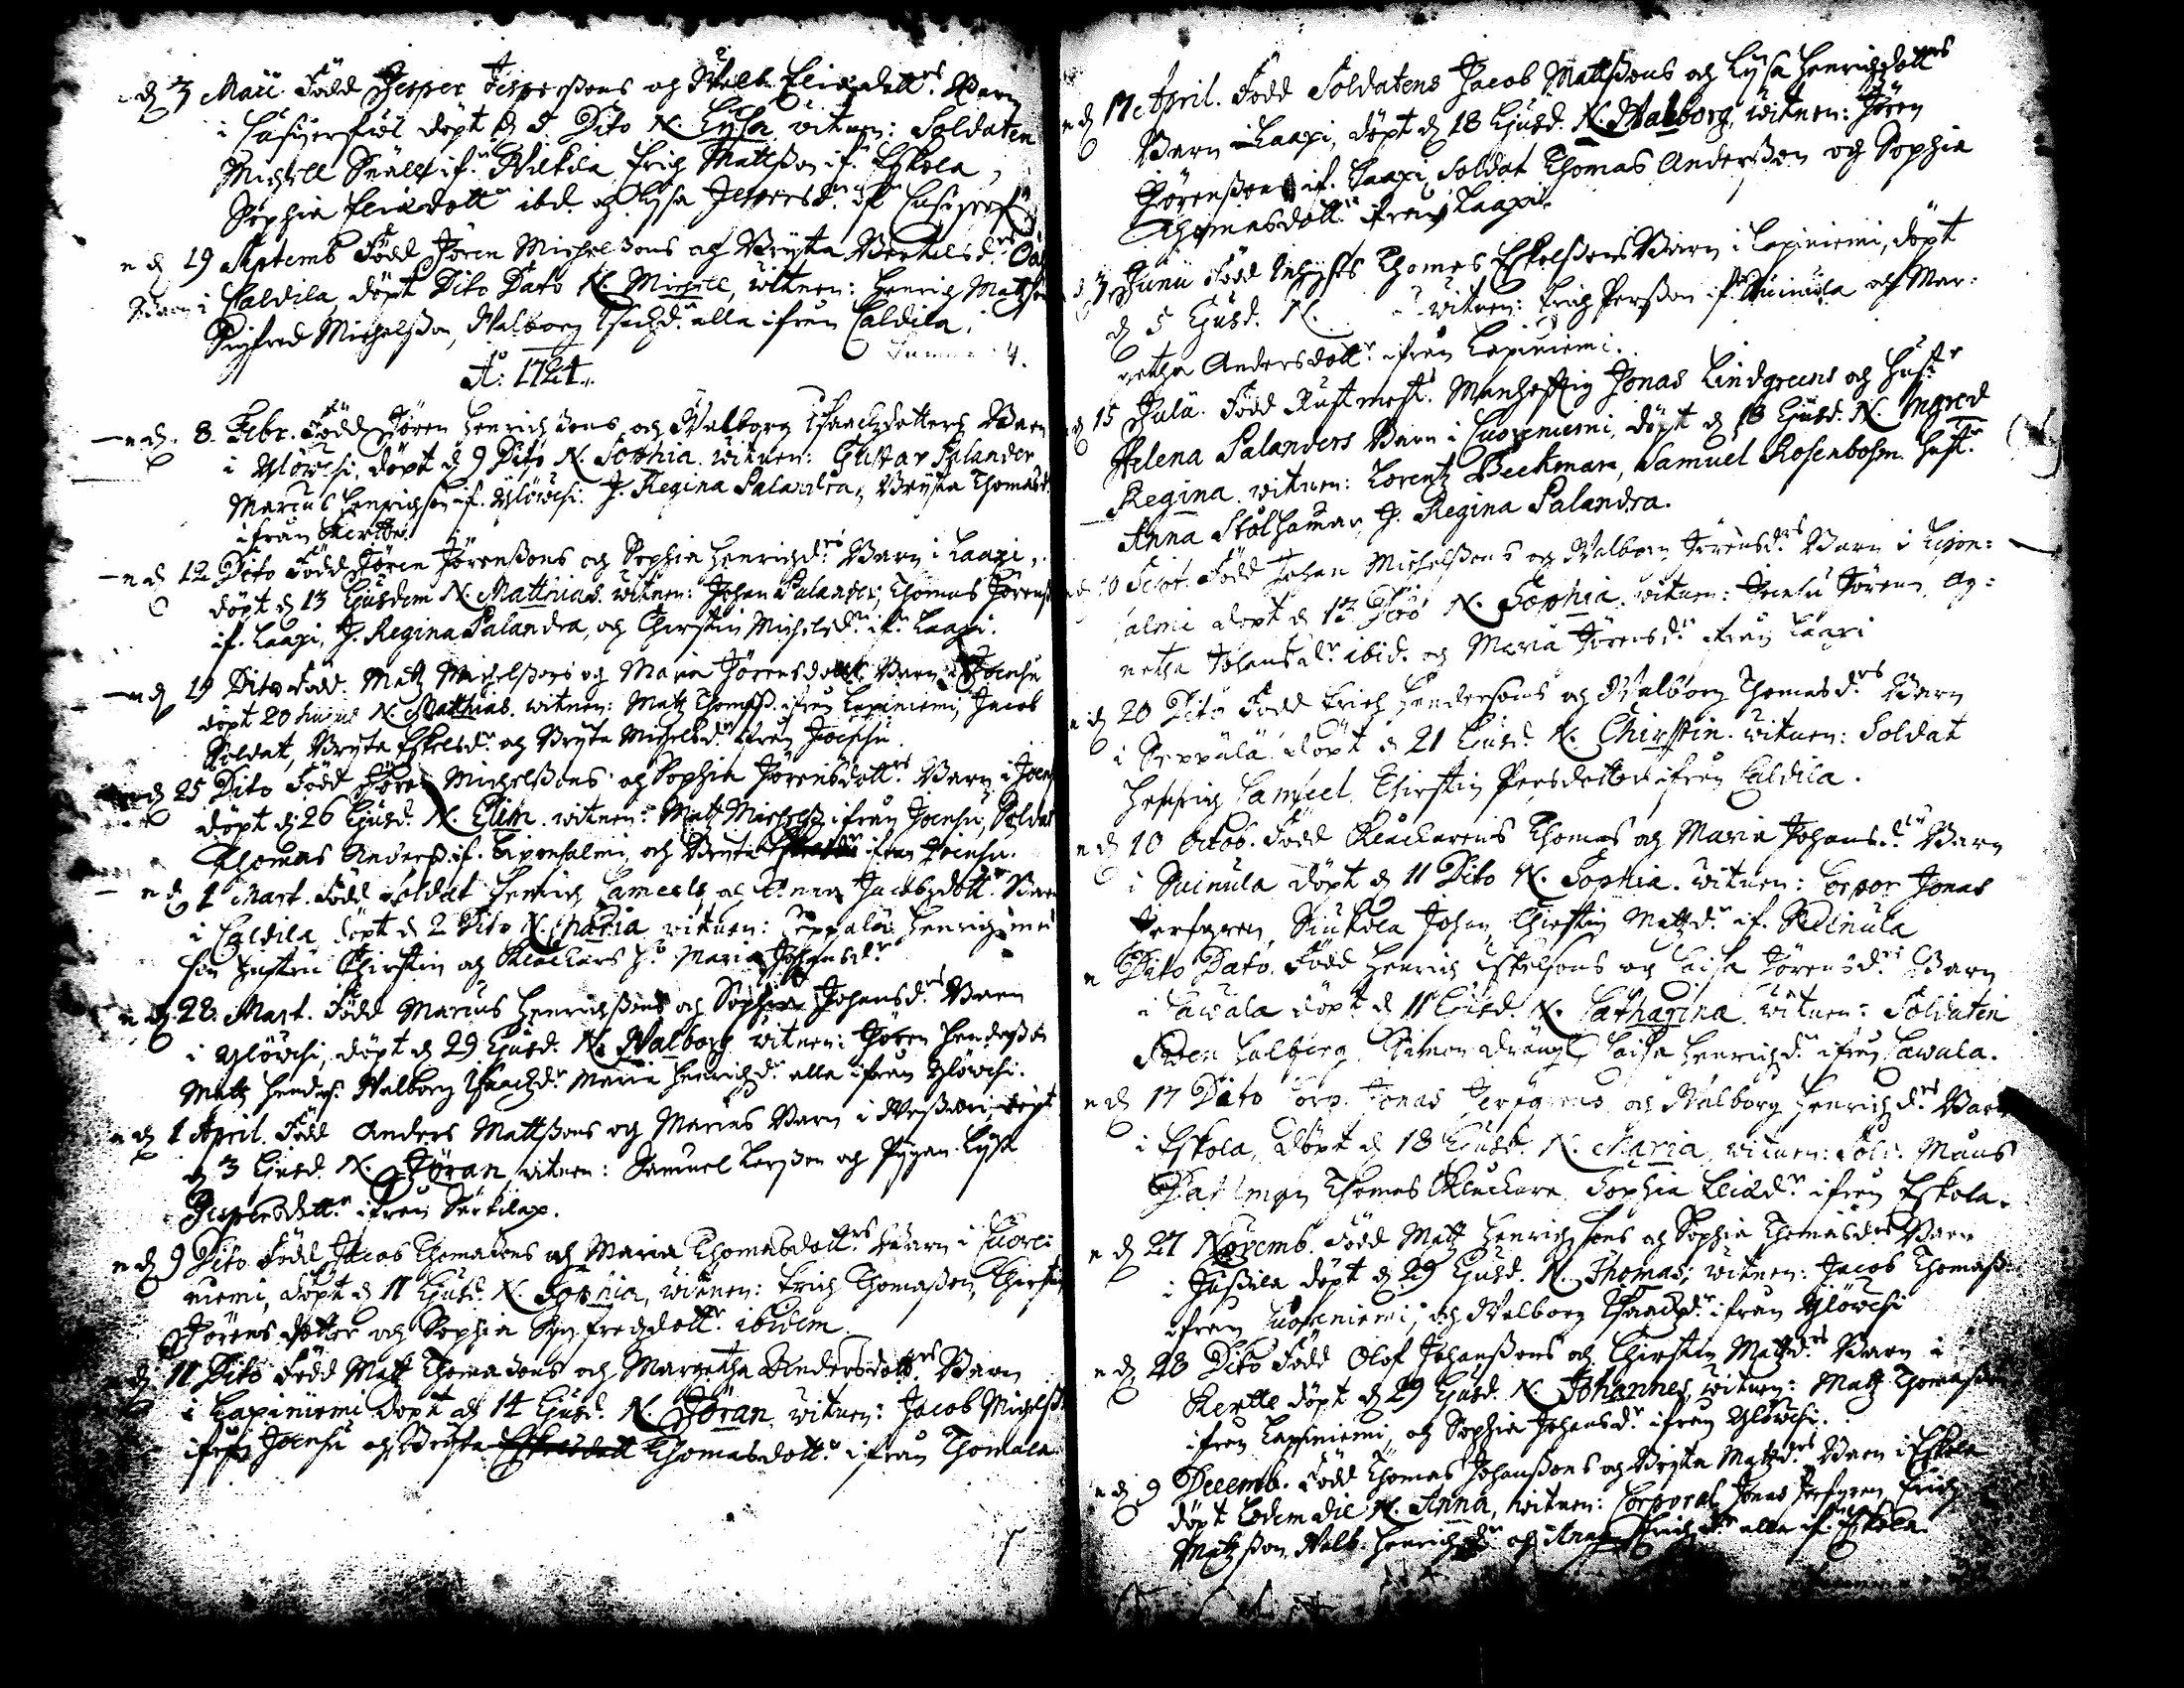 d 3 Maii. Född Jesper Jesperssons och Walb. Eliædottrs Barn
döpt d 5. Dito N. Lysa witnen: Soldaten
Michell Snäll if. Erich Mattsson if. Eskola,
Sophia Eliædottr ibd. och Lysa Jespersdr
n d 19 Septemb Född Jören Michelssons och Bryta Bertilsd:rs
Barn i Caldila, döpt Dito Dato N. Michell, witnen: Henrich Mattsson
Sigfred Michelsson, Walborg Isachzd:r alla ifrån Caldila.
Summa 4.
Ao: 1724.
n d. 8. Febr. Född Jören Henrichssons och Walborg Isaachzdotters Barn
i Ylöwesi, döpt d 9 Dito N. Sophia. witnen: Gustav Salander
Marcus Henrichson if. Ylöwesi. J. Regina Salandra, Bryta Thomasd.
ifrån Kertte.
n d 12 Dito Född Jören Jörenssons och Sophia Henrichd:rs Barn i Laaxi,
döpt d 13 Ejusdem N. Matthias. witnen: Johan Salander, Thomas Jörens
if. Laaxi, J. Regina Salandra, och Chirstin Michelsd:r if:n Laaxi.
n d 19 Dito Född. Matz Michelssons och Maria Jörensdottrs Barn i Joensu
döpt 20 hujus N. Matthias. witnen: Matz Thomass. ifrån Lapiniemi, Jacob
Soldat, Bryta Eskelsd:r och Bryta Michelsd:r ifrån Joensu.
n d 25 Dito Född Jören Michelssons och Sophia Jörensdottrs Barn i Joens
döpt d 26 Ejusd. N. Elin. witnen: Matz Michelss ifrån Joensu, Soldat
Thomas Anderss. if. Lixensalmi, och Bryta ifrån Joensu.
n d 1 Mart. Född Soldat Henrich Lameels och Anna Jacobzdottrs Barn
i Caldila döpt d 2 Dito N. Maria witnen: Seppälä Henrich med
sin hustru Chirstin och Klockars Maria Johansd:r
n d. 28. Mart. Född Marcus Henrichssons och Sophia Johansd:rs Barn
i Ylöwesi, döpt d 29 Ejusd. N. Walborg witnen: Jören Hendersson
Matz Henders. Walborg Isaachzd:r Maria Henrichd:r alla ifrån Ylöwesi.
n d 1 April. Född Anders Mattssons och Marias Barn i döpt
d 3 Ejusd. N. Jöran, witnen: Samuel Larsson och Pigan Lysa
Jespersdottr ifrån Särkilax.
n d 9 Dito Född Jacob Thomassons och Maria Thomasdottrs Barn i Cuore
niemi, döpt d 11 Ejusd. N. Sophia, witnen: Erich Thomasson, Chirstin
Jörens dotter och Sophia Sigfredzdottr ibidem
n d 11 Dito Född Matt Thomassons och Margetha Andersdottrs Barn
i Lapiniemi döpt d 14 Ejusd. N. Jöran, witnen: Jacob Michelss
ifrån Joensu och Bryta Eskelsdott Thomasdottr ifrån Thomala
n d 17 April. Född Soldatens Jacob Mattssons och Lysa Henrichdottrs
Barn i Laaxi, döpt d 18 Ejusd. N. Walborg, witnen: Jören
Jörensson if. Laaxi, Soldat Thomas Andersson och Sophia
Thomasdottr ifrån Laaxi.
d 3 Junii Född Inhyses Thomas Eskelssons Barn i Lapiniemi, döpt
d 5 Ejusd. N. ... witnen: Erich Persson if. Suinula och Mar-
getha Andersdottr ifrån Lapiniemi.
d 15 Julii. Född Rustmest. Manhafftig Jonas Lindgreens och Hustr
Helena Salanders Barn i Cuoreniemi, döpt d 18 Ejusd. N. Ingred
Regina. witnen: Lorentz Beckman, Samuel Rosenbohm Hustr
Anna Stolhamar, J. Regina Salandra.
n d 10 Sept. Född Johan Michelssons och Walborg Jörensd:rs Barn i Lixen-
salmi döpt d 12 N. Sophia. witnen: Joensu Jören, Ag-
netha Johansd:r ibid. och Maria Jörensd:r ifrån Laaxi
n d 20 Dito Född Erich Henderssons och Walborg Thomasd:rs Barn
i Seppälä döpt d 21 Ejusd. N. Chirstin. witnen: Soldat
Henrich Lameel, Chirstin Persdotter ifrån Caldila.
n d 10 Octob. Född Klockarens Thomas och Maria Johansd:rs Barn
i Suinula döpt d 11 Dito N. Sophia. witnen: Corpor Jonas
Johan Chirstin Mattzd:r if. Suinula
n Dito Dato. Född Henrich Eskelssons och Caisa Jörensd:rs Barn
i Cawala döpt d 11 Ejusd. N. Catharina. witnen: Soldaten
Simon dräng, Caisa Henrichd:r ifrån Cawala.
n d 17 Dito Corp. Jonas och Walborg Henrichd:rs Barn
i Eskola, döpt d 18 Ejusd. N. Maria, witnen: Sold. Måns
Thomas Klockare Sophia Eliæd:r ifrån Eskola.
n d 27 Novemb. Född Matz Henrichssons och Sophia Thomasd:rs Barn
i Jussila döpt d 29 Ejusd. N. Thomas, witnen: Jacob Thomass
ifrån Cuoreniemi, och Walborg Isaachzd:r ifrån Ylöwesi
n d 28 Dito Född Olof Johanssons och Chirstin Mattzd:rs Barn i
Kertte döpt d 29 Ejusd. N. Johannes, witnen: Matz Thomasson
ifrån Lapiniemi, och Sophia Johansd:r ifrån Ylöwesi.
n d 9 Decemb. Född Thomas Johanssons och Bryta Matzd:rs Barn i Eskola
döpt Eodem die N. Anna, witnen: Corporal Jonas Erich
Matzsson, Walb. Henrichd:r och Anna Erichd:r alla if. Eskola.